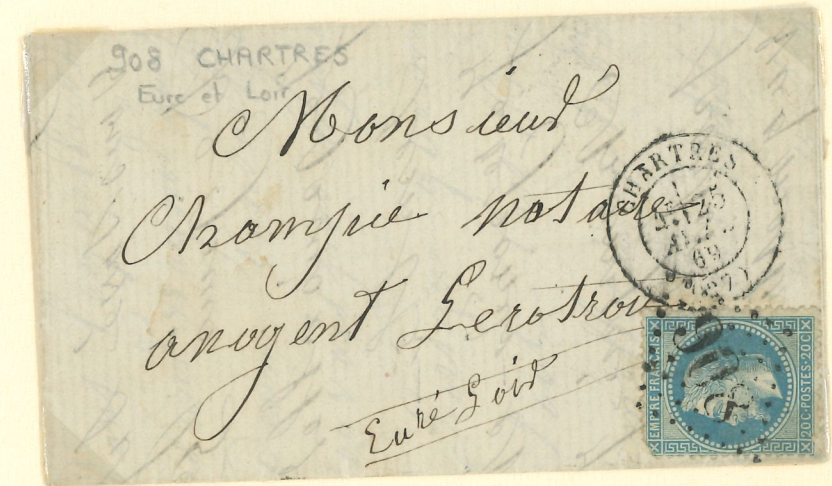 908 CHARTRES
Eure et Loir
Monsieur
Champie notaire
anogent Lerotrou
Euré Loir
CHARTRES
69
EMPIRE FRANÇAIS
20C POSTES 20C